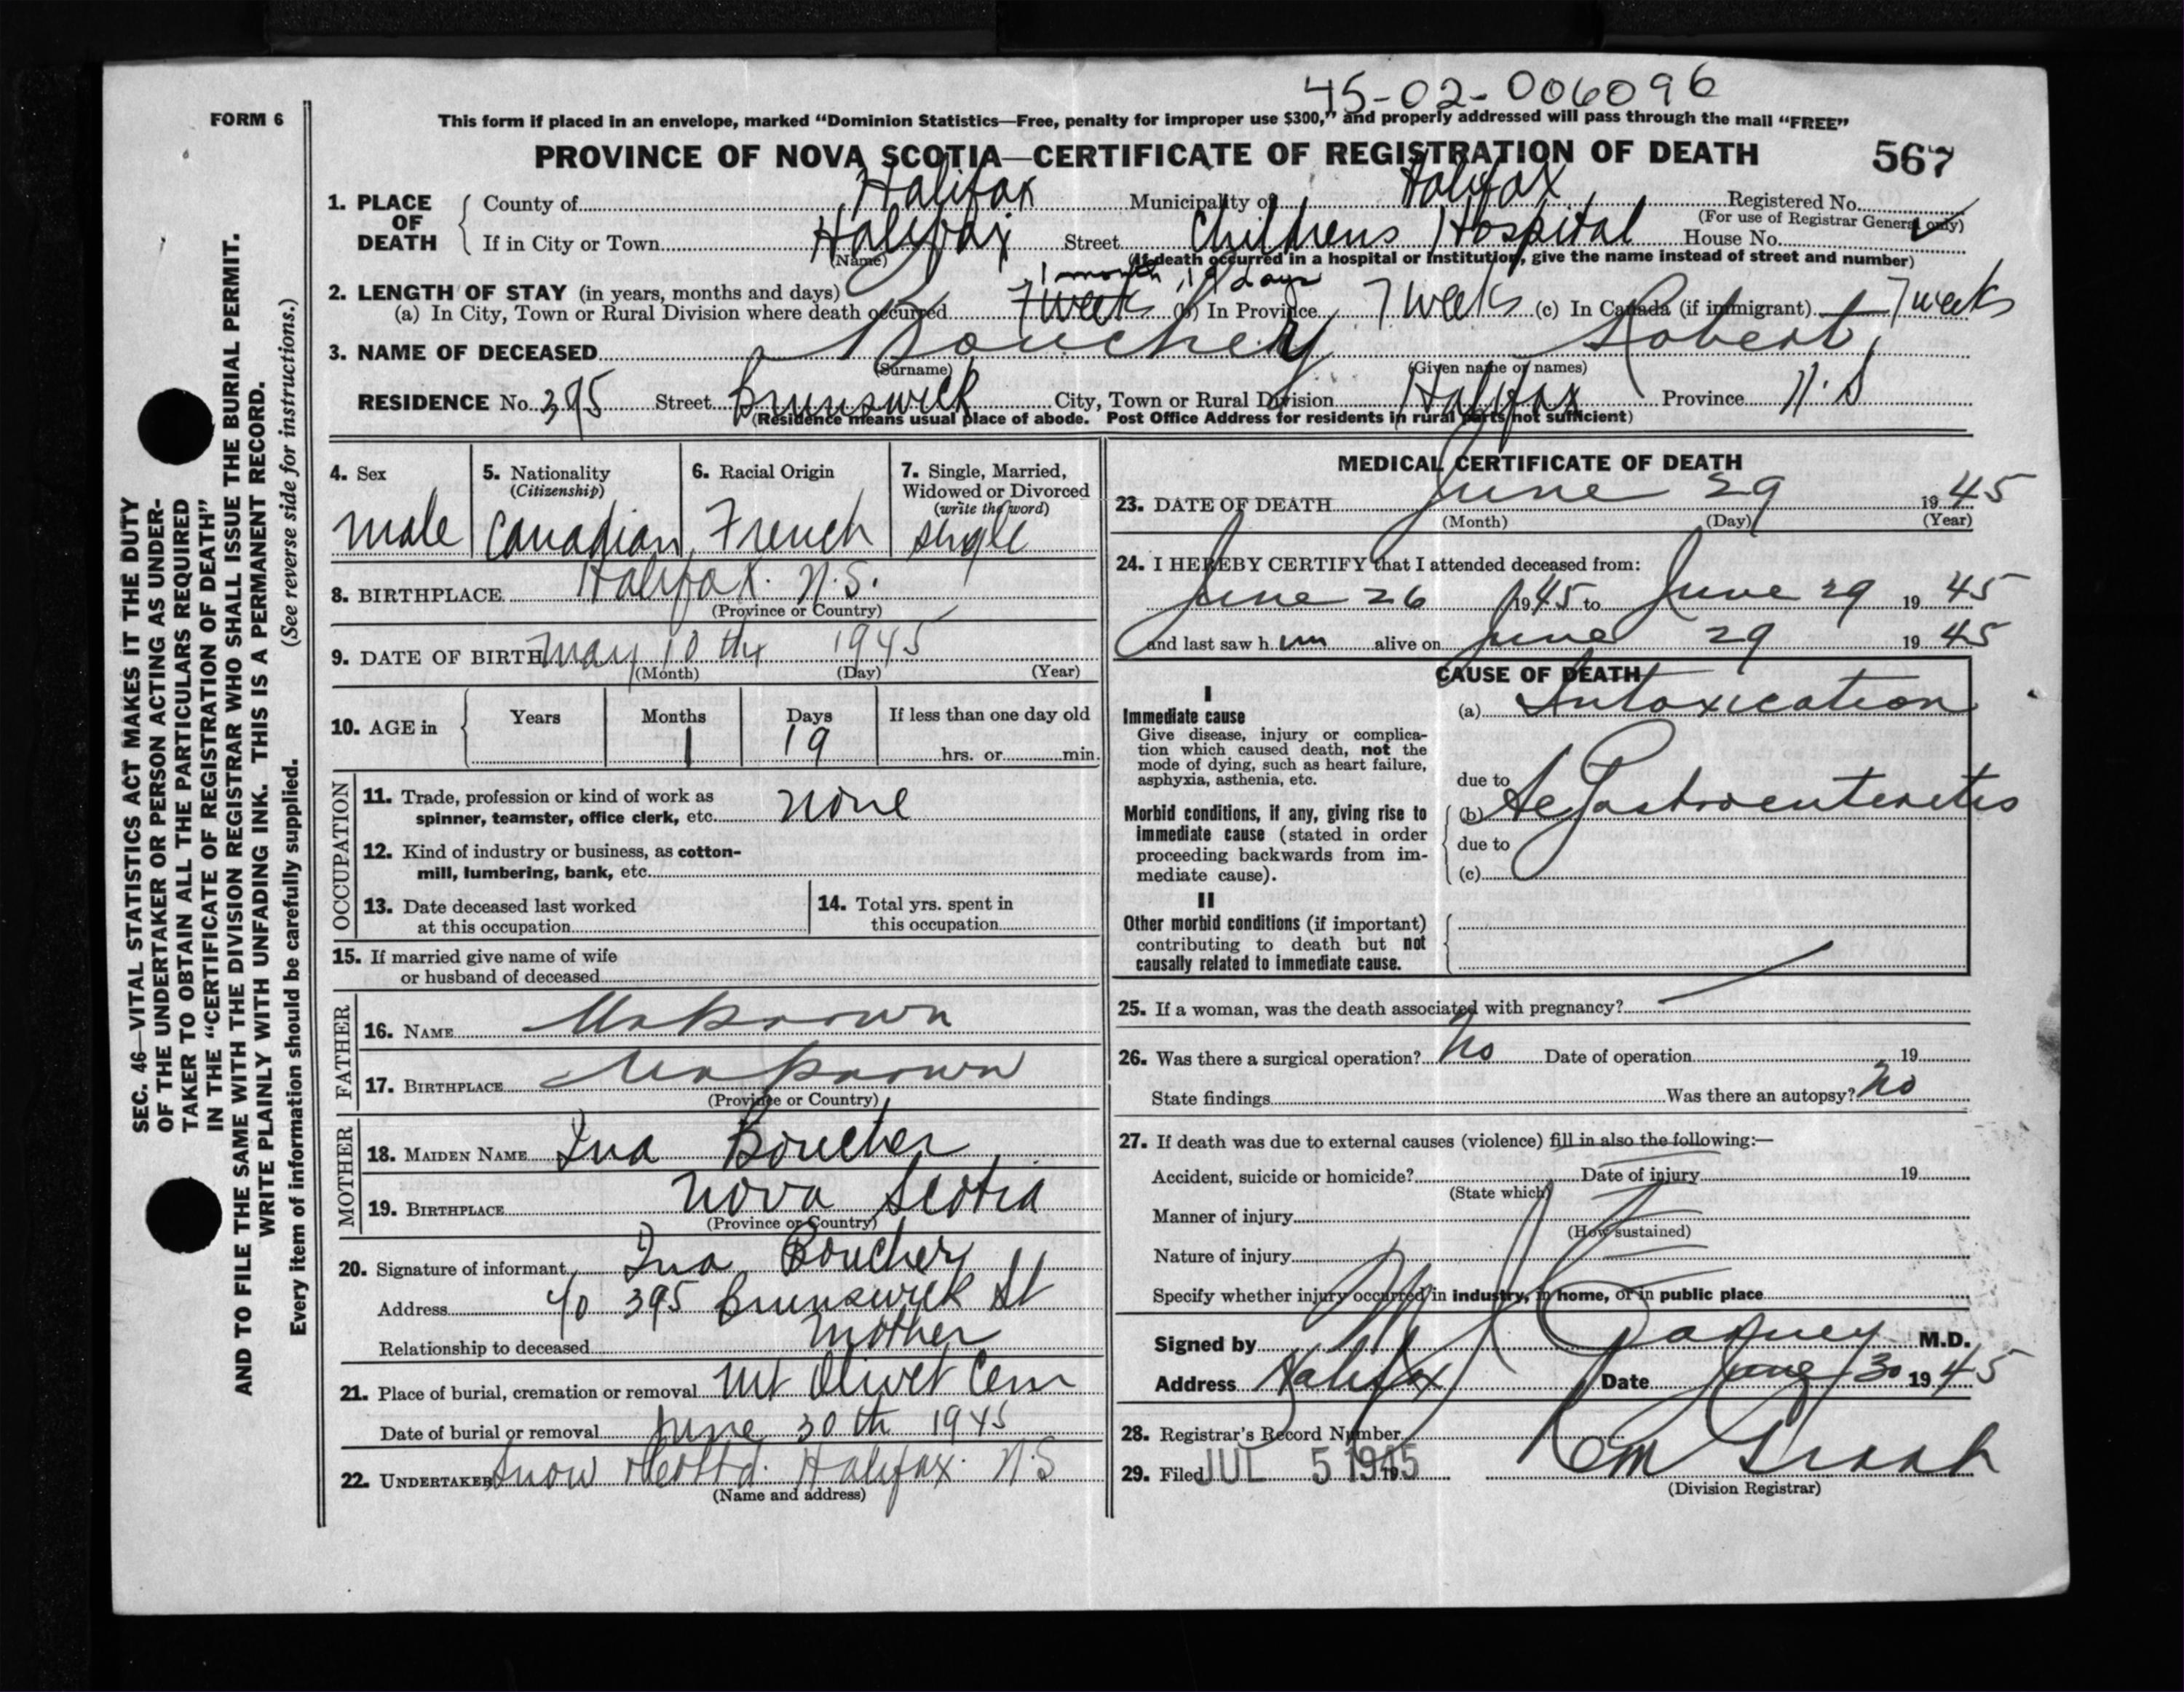 45-02-006096
FORM 6
This form if placed in an envelope, marked “Dominion Statistics—Free, penalty for improper use $300,” and properly addressed will pass through the mail “FREE”
PROVINCE OF NOVA SCOTIA—CERTIFICATE OF REGISTRATION OF DEATH 567
1. PLACE OF DEATH
County of Halifax Municipality of Halifax Registered No.
(For use of Registrar General only)
If in City or Town Halifax Street Childrens Hospital House No.
(Name) (If death occurred in a hospital or institution, give the name instead of street and number)
1 month 19 days
2. LENGTH OF STAY (in years, months and days)
(a) In City, Town or Rural Division where death occurred 7 week (b) In Province 7 weeks (c) In Canada (if immigrant) 7 weeks
3. NAME OF DECEASED Bouchey Robert
(Surname) (Given name or names)
RESIDENCE No. 395 Street Brunswick City, Town or Rural Division Halifax Province N.S
(Residence means usual place of abode. Post Office Address for residents in rural parts not sufficient)
4. Sex
male
5. Nationality
(Citizenship)
Canadian
6. Racial Origin
French
7. Single, Married,
Widowed or Divorced
(write the word)
single
8. BIRTHPLACE Halifax. N.S.
(Province or Country)
9. DATE OF BIRTH May 10 th 1945
(Month) (Day) (Year)
10. AGE in
Years Months Days If less than one day old
1 19 hrs. or min.
OCCUPATION
11. Trade, profession or kind of work as
spinner, teamster, office clerk, etc. none
12. Kind of industry or business, as cotton-
mill, lumbering, bank, etc.
13. Date deceased last worked
at this occupation
14. Total yrs. spent in
this occupation
15. If married give name of wife
or husband of deceased
FATHER
16. NAME Unknown
17. BIRTHPLACE Unknown
(Province or Country)
MOTHER
18. MAIDEN NAME Ina Boucher
19. BIRTHPLACE Nova Scotia
(Province or Country)
20. Signature of informant Ina Bouchey
Address 395 Brunswick St
Relationship to deceased Mother
21. Place of burial, cremation or removal Mt Olivet Cem
Date of burial or removal June 30 th 1945
22. UNDERTAKER Snow Halifax. N.S
(Name and address)
MEDICAL CERTIFICATE OF DEATH
23. DATE OF DEATH June 29 1945
(Month) (Day) (Year)
24. I HEREBY CERTIFY that I attended deceased from:
June 26 1945 to June 29 1945
and last saw him alive on June 29 1945
CAUSE OF DEATH
I
Immediate cause
Give disease, injury or complica-
tion which caused death, not the
mode of dying, such as heart failure,
asphyxia, asthenia, etc.
(a) Intoxication
due to
Morbid conditions, if any, giving rise to
immediate cause (stated in order
proceeding backwards from im-
mediate cause).
(b) Ac Gastroenteritis
due to
(c)
II
Other morbid conditions (if important)
contributing to death but not
causally related to immediate cause.
25. If a woman, was the death associated with pregnancy?
26. Was there a surgical operation? No Date of operation 19
State findings Was there an autopsy? No
27. If death was due to external causes (violence) fill in also the following:—
Accident, suicide or homicide? Date of injury 19
(State which)
Manner of injury
(How sustained)
Nature of injury
Specify whether injury occurred in industry, in home, or in public place
Signed by M.D.
Address Halifax Date June 30 1945
28. Registrar's Record Number
29. Filed JUL 5 1945
(Division Registrar)
SEC. 46—VITAL STATISTICS ACT MAKES IT THE DUTY
OF THE UNDERTAKER OR PERSON ACTING AS UNDER-
TAKER TO OBTAIN ALL THE PARTICULARS REQUIRED
IN THE “CERTIFICATE OF REGISTRATION OF DEATH”
AND TO FILE THE SAME WITH THE DIVISION REGISTRAR WHO SHALL ISSUE THE BURIAL PERMIT.
WRITE PLAINLY WITH UNFADING INK. THIS IS A PERMANENT RECORD.
Every item of information should be carefully supplied. (See reverse side for instructions.)